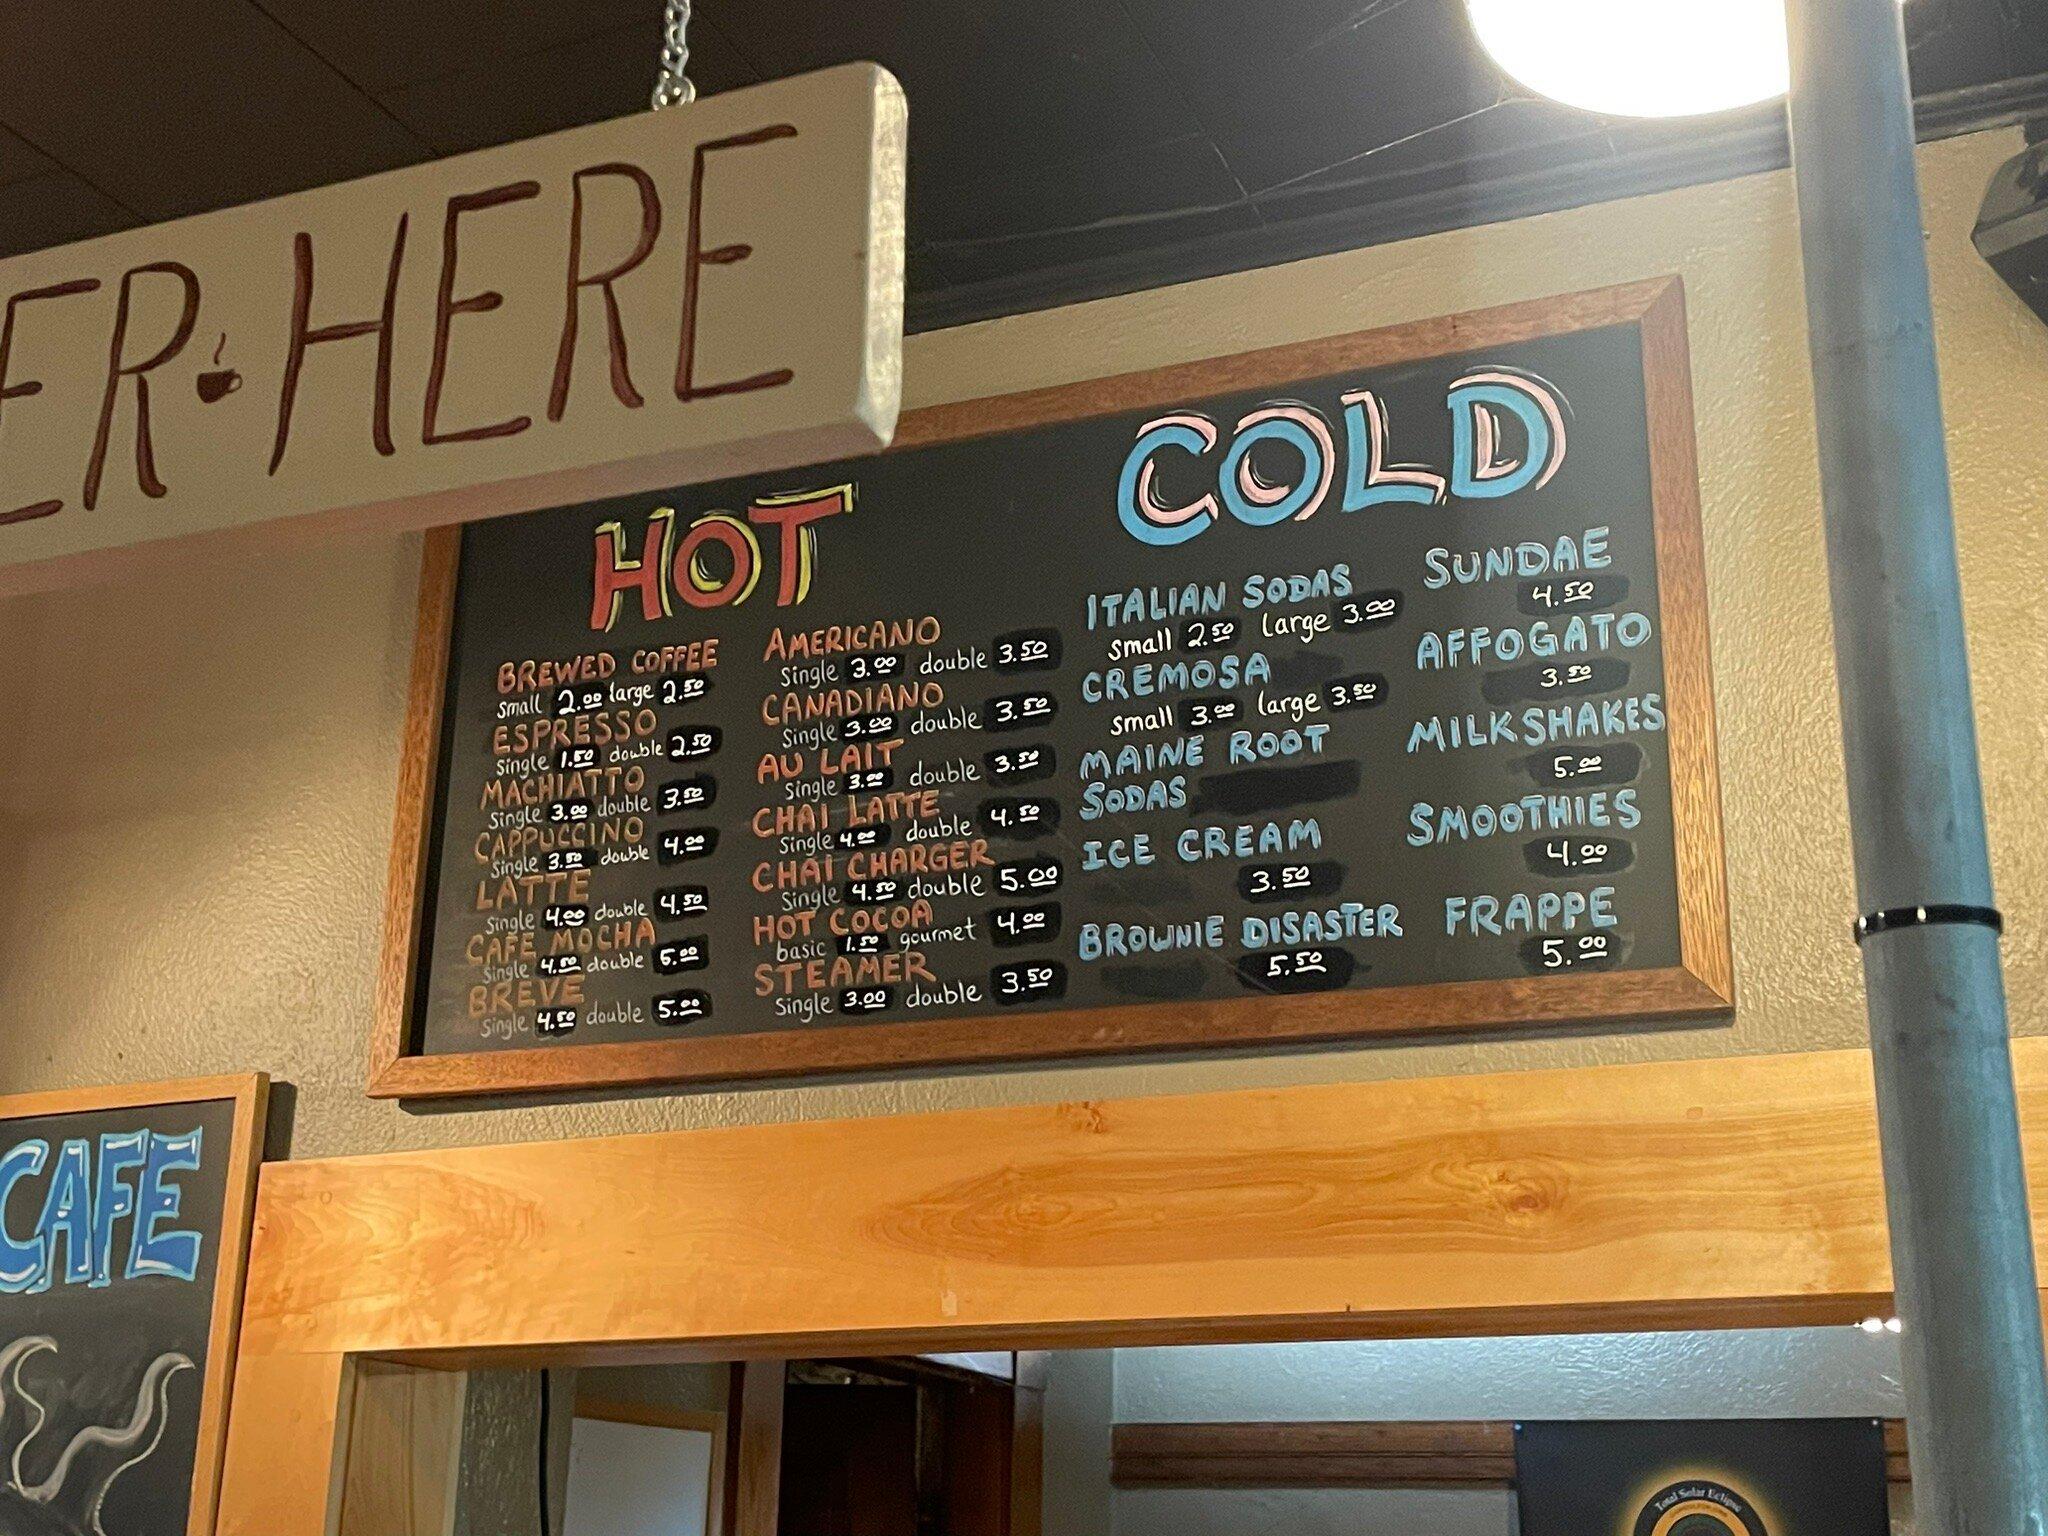 ER HERE
HOT
BREWED COFFEE
small 2.00 large 2.50
ESPRESSO
single 1.50 double 2.50
MACHIATTO
single 3.00 double 3.50
CAPPUCCINO
single 3.50 double 4.00
LATTE
single 4.00 double 4.50
CAFE MOCHA
single 4.50 double 5.00
BREVE
single 4.50 double 5.00
AMERICANO
single 3.00 double 3.50
CANADIANO
single 3.00 double 3.50
AU LAIT
single 3.00 double 3.50
CHAI LATTE
single 4.00 double 4.50
CHAI CHARGER
single 4.50 double 5.00
HOT COCOA
basic 1.50 gourmet 4.00
STEAMER
single 3.00 double 3.50
COLD
ITALIAN SODAS
small 2.50 large 3.00
CREMOSA
small 3.00 large 3.50
MAINE ROOT
SODAS
ICE CREAM
3.50
BROWNIE DISASTER
5.50
SUNDAE
4.50
AFFOGATO
3.50
MILKSHAKES
5.00
SMOOTHIES
4.00
FRAPPE
5.00
CAFE
Total Solar Eclipse